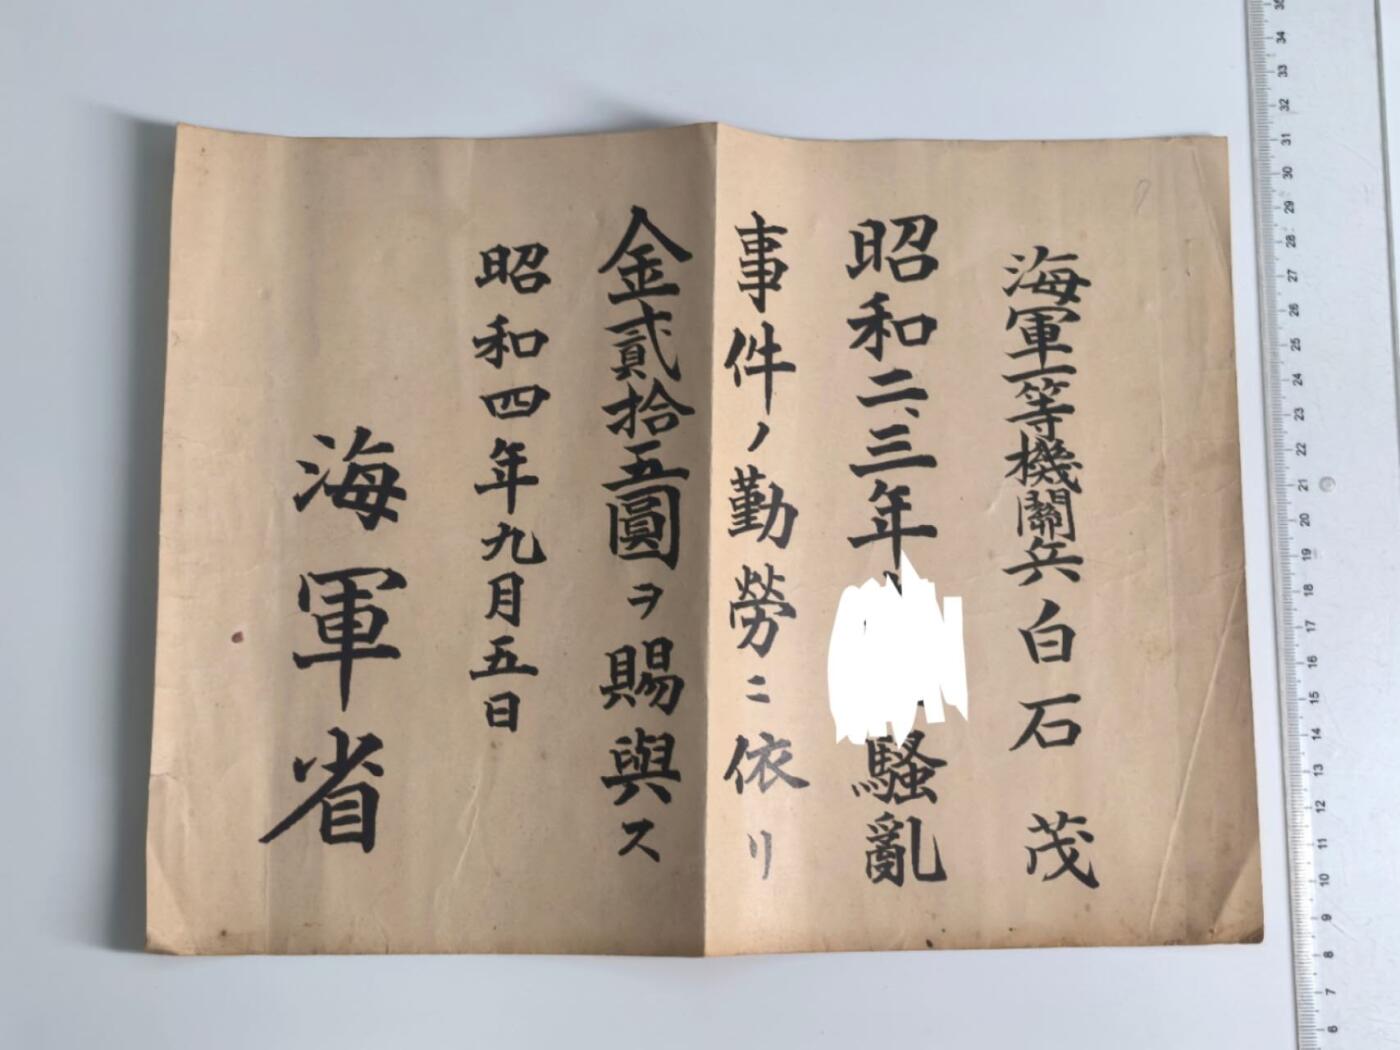 海軍一等機關兵白石茂
昭和二、三年 騷亂
事件ノ勤勞ニ依リ
金貳拾五圓ヲ賜與ス
昭和四年九月五日
海軍省
35
34
33
32
31
30
29
28
27
26
25
24
23
22
21
20
19
18
17
16
15
14
13
12
11
10
9
8
7
6